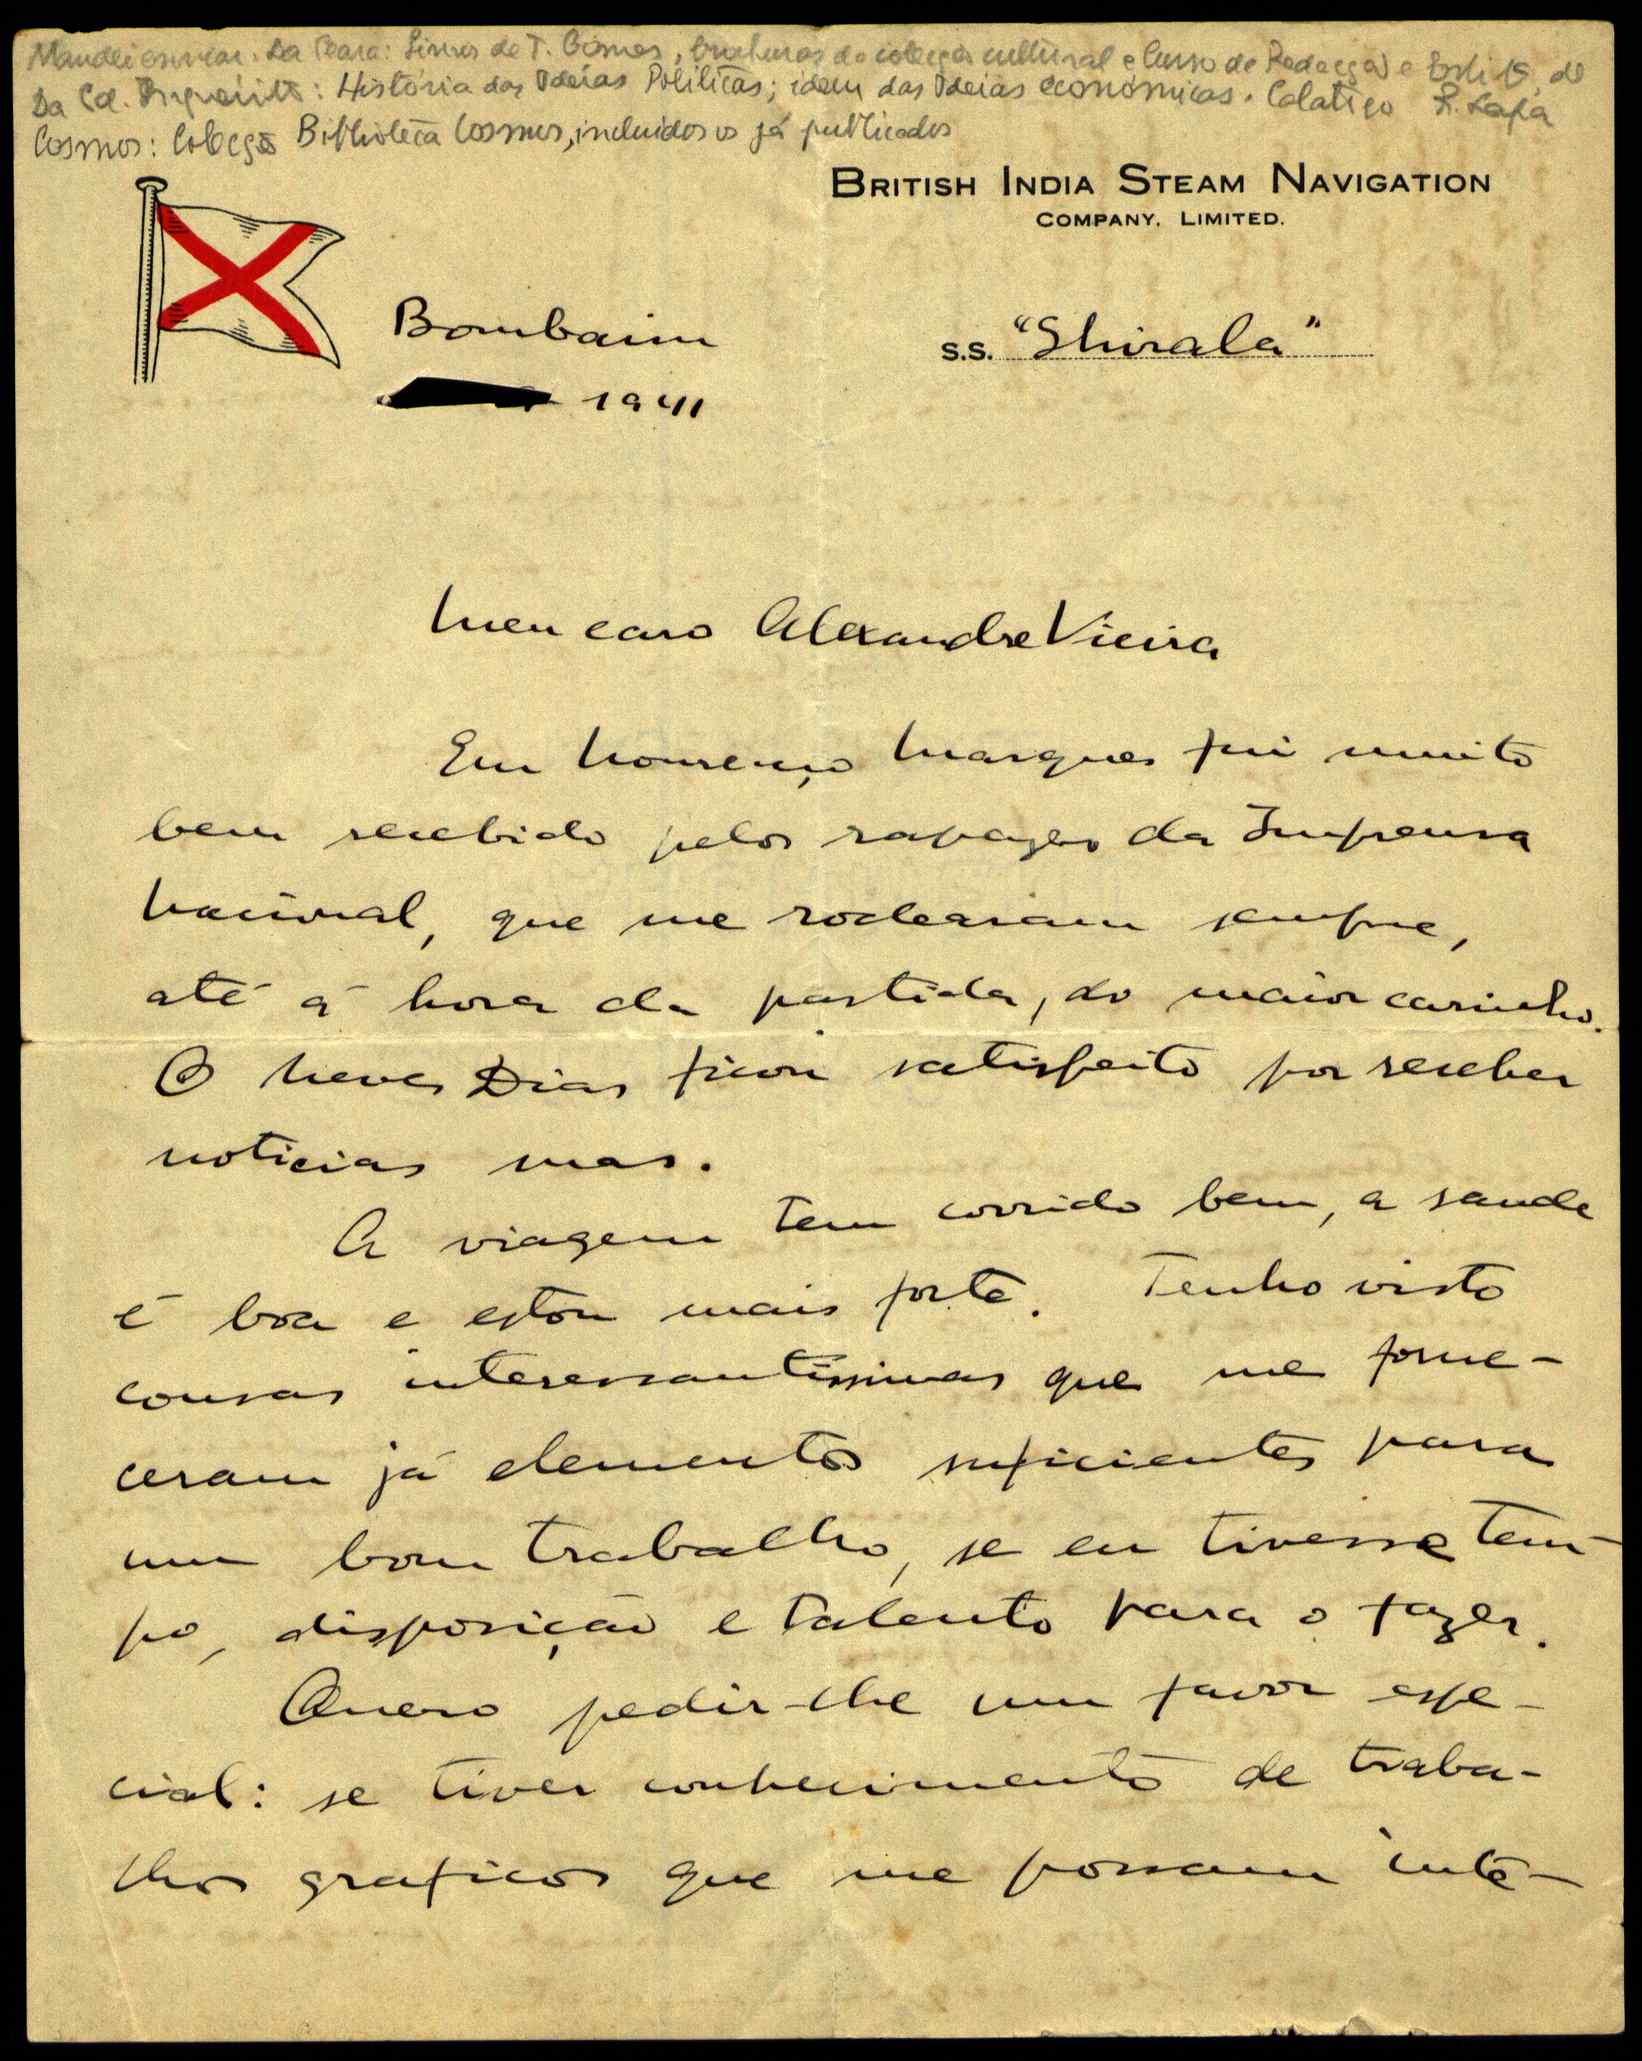 Mandei enviar: Da Seara: Livros de T. Gomes, brochuras da colecção cultural e Curso de Redacção e Estilo, de
Da Ed. Inquérito: História das Ideias Políticas; idem das Ideias económicas. Calatigo R. Lapa
Cosmos: Colecção Biblioteca Cosmos, incluidos os já publicados
BRITISH INDIA STEAM NAVIGATION
COMPANY, LIMITED.
Bombaim
S.S. "Shirala"
1941
Meu caro Alexandre Vieira
Em Lourenço Marques fui muito
bem recebido pelos rapazes da Imprensa
Nacional, que me rodearam sempre,
até á hora da partida, do maior carinho.
O Neves Dias ficou satisfeito por receber
noticias suas.
A viagem tem corrido bem, a saude
é boa e estou mais forte. Tenho visto
cousas interessantissimas que me forne-
ceram já elementos suficientes para
um bom trabalho, se eu tivesse tem-
po, disposição e talento para o fazer.
Quero pedir-lhe um favor espe-
cial: se tiver conhecimento de traba-
lhos graficos que me possam inte-